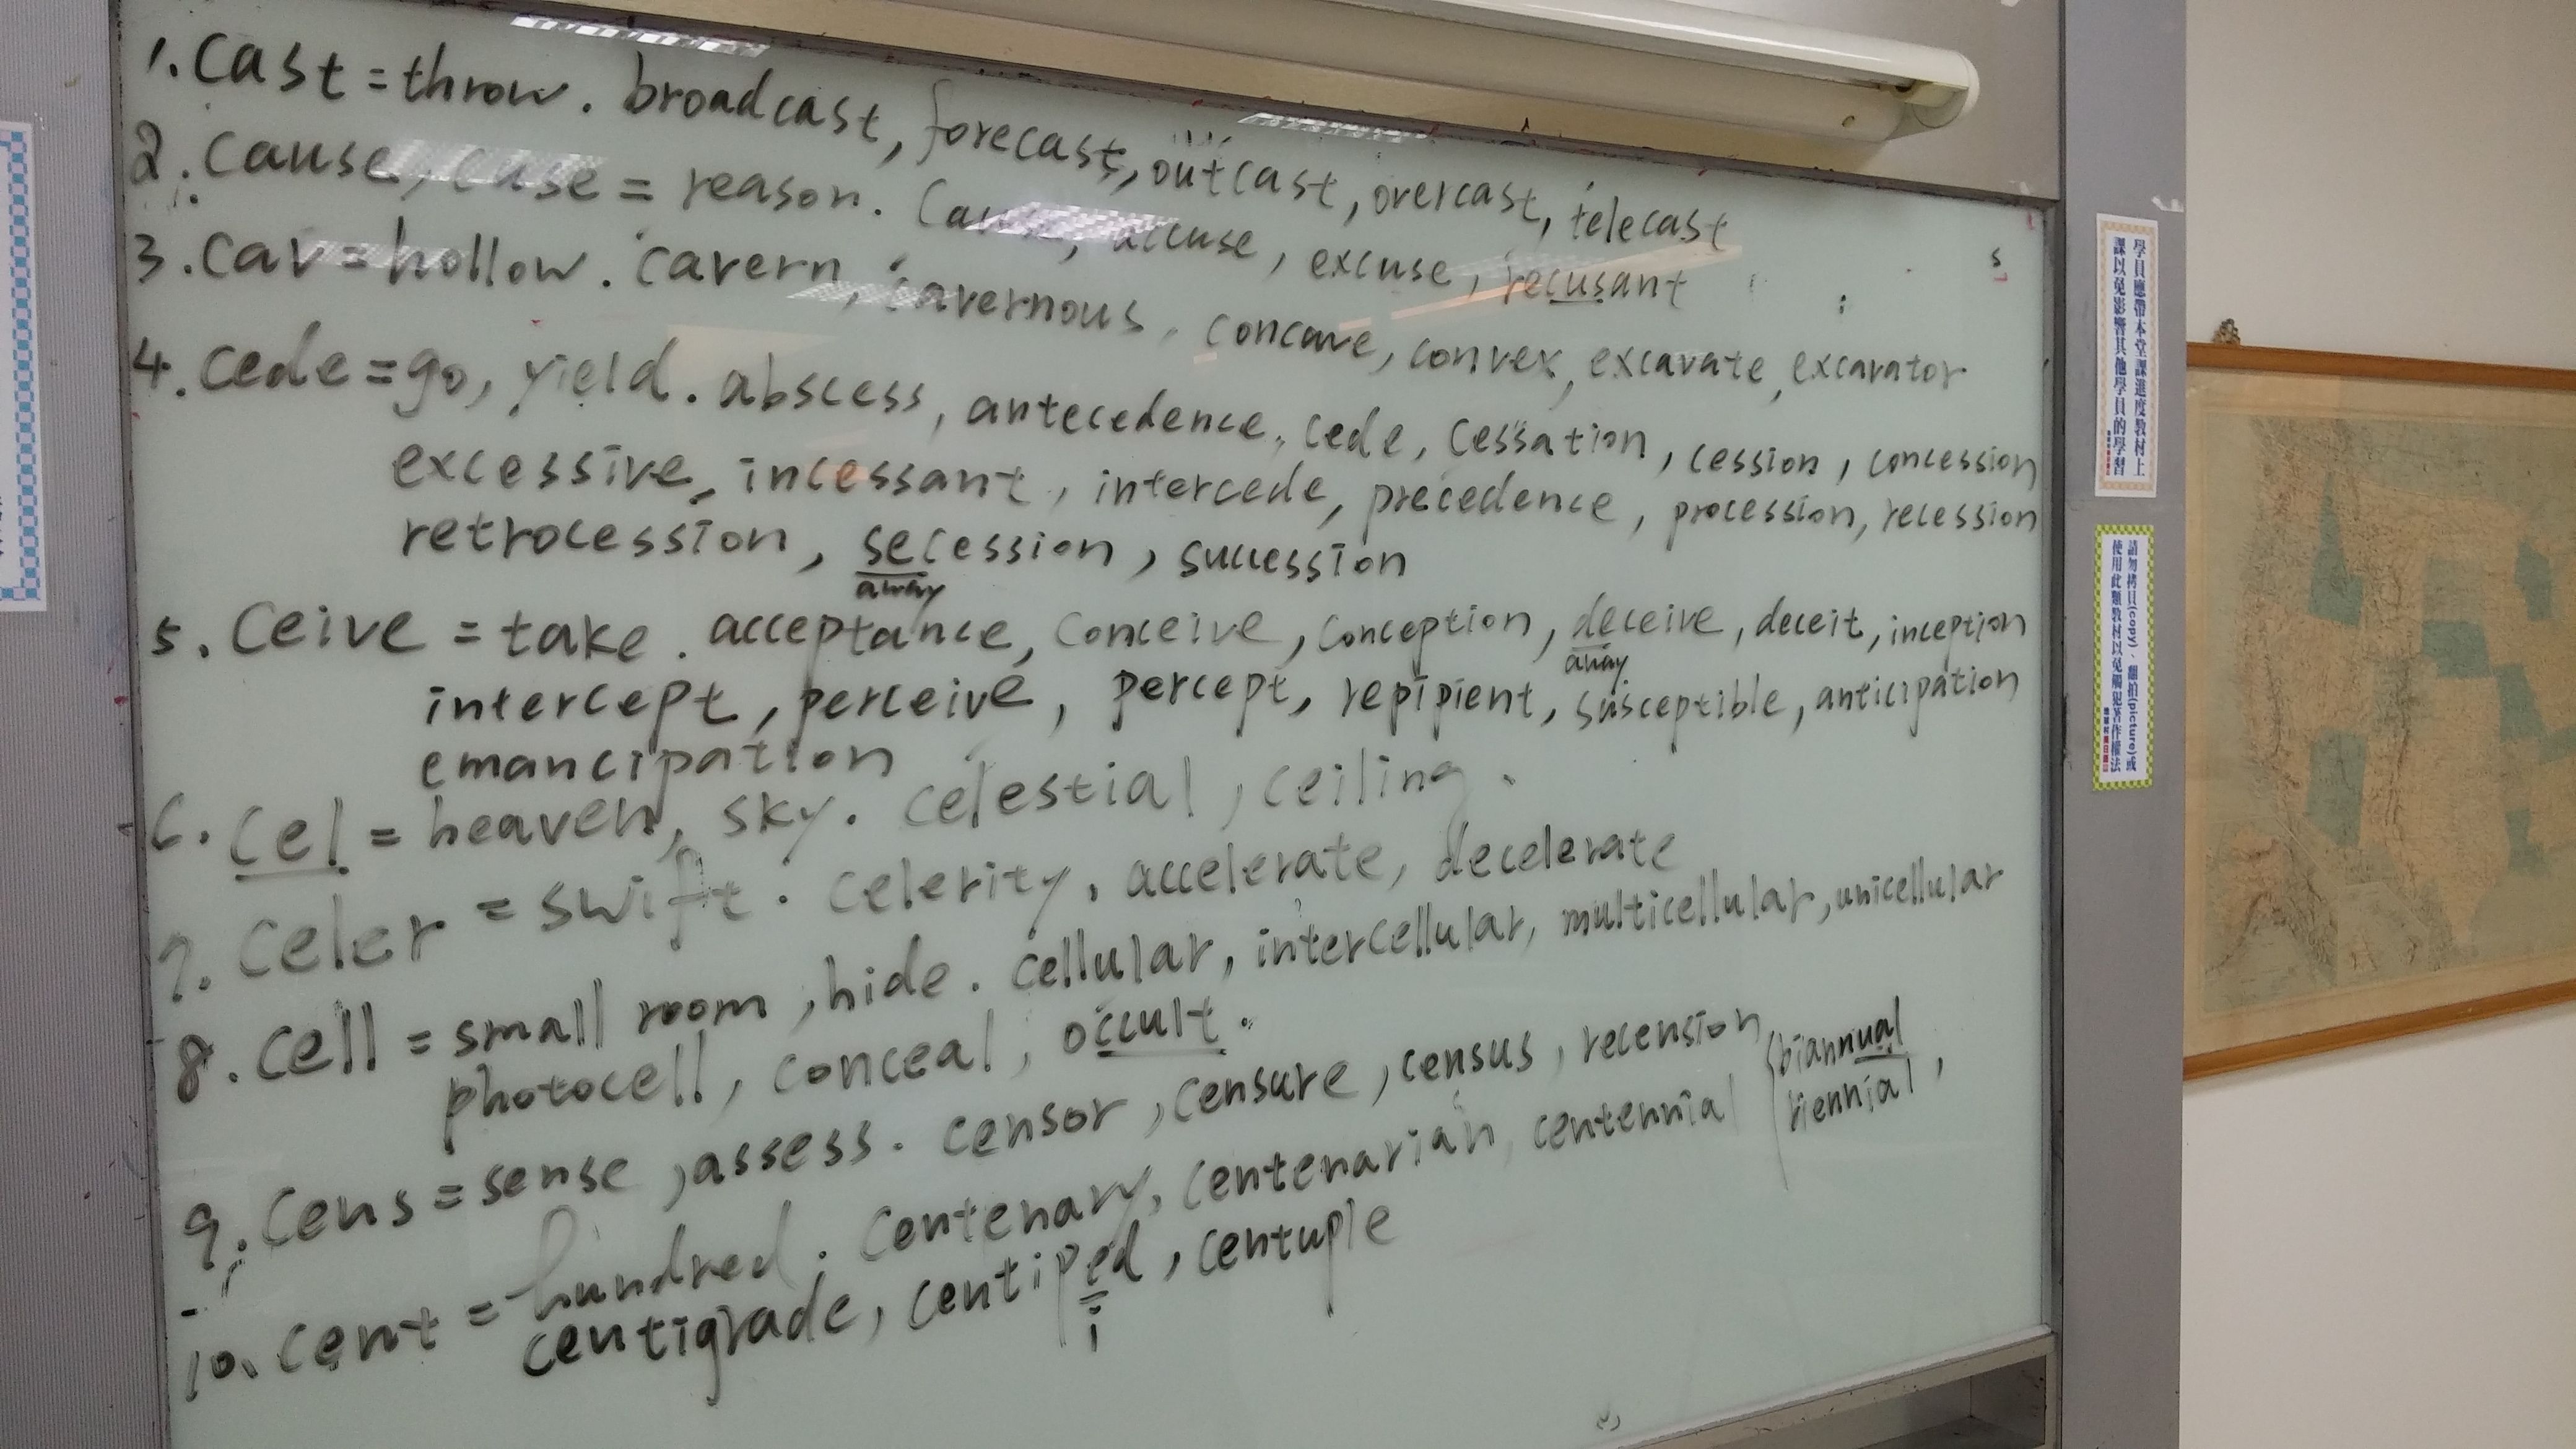 1. cast = throw. broadcast, forecast, outcast, overcast, telecast
2. cause, case = reason. cause, accuse, excuse, recusant
3. cav = hollow. cavern, cavernous, concave, convex, excavate, excavator
4. cede = go, yield. abscess, antecedence, cede, cessation, cession, concession
excessive, incessant, intercede, precedence, procession, recession
retrocession, secession, succession
away
5. ceive = take. acceptance, conceive, conception, deceive, deceit, inception
away
intercept, perceive, percept, repipient, susceptible, anticipation
emancipation
6. cel = heaven, sky. celestial, ceiling.
7. celer = swift. celerity, accelerate, decelerate
8. cell = small room, hide. cellular, intercellular, multicellular, unicellular
photocell, conceal, occult.
9. cens = sense, assess. censor, censure, census, recension
10. cent = hundred. centenary, centenarian, centennial
biannual
centigrade, centiped, centuple
i
學員應帶本堂課進度教材上
課以免影響其他學員的學習
請勿拷貝(copy)、翻拍(picture)或
使用此類教材以免觸犯著作權法